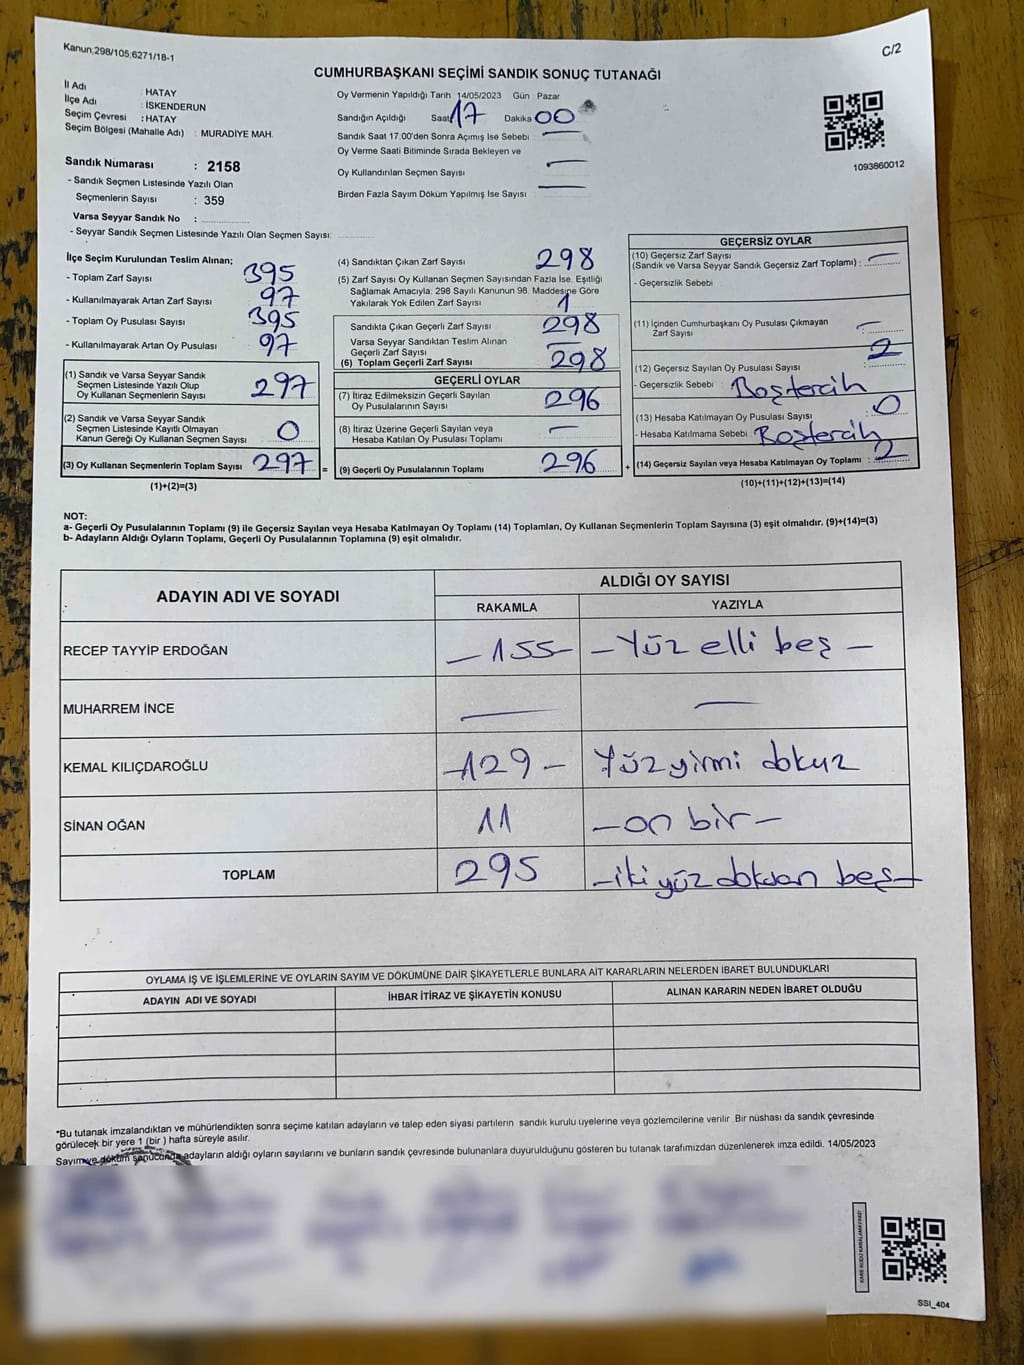 Kanun;298/105;6271/18-1
C/2
CUMHURBAŞKANI SEÇİMİ SANDIK SONUÇ TUTANAĞI
İl Adı : HATAY
İlçe Adı : İSKENDERUN
Seçim Çevresi : HATAY
Seçim Bölgesi (Mahalle Adı) : MURADİYE MAH.
Sandık Numarası : 2158
- Sandık Seçmen Listesinde Yazılı Olan
Seçmenlerin Sayısı : 359
Varsa Seyyar Sandık No :
- Seyyar Sandık Seçmen Listesinde Yazılı Olan Seçmen Sayısı:
Oy Vermenin Yapıldığı Tarih 14/05/2023 Gün Pazar
Sandığın Açıldığı Saat 17 Dakika 00
Sandık Saat 17.00'den Sonra Açımış İse Sebebi : —
Oy Verme Saati Bitiminde Sırada Bekleyen ve
Oy Kullandırılan Seçmen Sayısı —
Birden Fazla Sayım Döküm Yapılmış İse Sayısı : —
1093860012
İlçe Seçim Kurulundan Teslim Alınan;
- Toplam Zarf Sayısı 395
- Kullanılmayarak Artan Zarf Sayısı 97
- Toplam Oy Pusulası Sayısı 395
- Kullanılmayarak Artan Oy Pusulası 97
(1) Sandık ve Varsa Seyyar Sandık
Seçmen Listesinde Yazılı Olup
Oy Kullanan Seçmenlerin Sayısı 297
(2) Sandık ve Varsa Seyyar Sandık
Seçmen Listesinde Kayıtlı Olmayan
Kanun Gereği Oy Kullanan Seçmen Sayısı 0
(3) Oy Kullanan Seçmenlerin Toplam Sayısı 297 =
(1)+(2)=(3)
(4) Sandıktan Çıkan Zarf Sayısı 298
(5) Zarf Sayısı Oy Kullanan Seçmen Sayısından Fazla İse, Eşitliği
Sağlamak Amacıyla; 298 Sayılı Kanunun 98. Maddesine Göre
Yakılarak Yok Edilen Zarf Sayısı 1
Sandıkta Çıkan Geçerli Zarf Sayısı 298
Varsa Seyyar Sandıktan Teslim Alınan
Geçerli Zarf Sayısı —
(6) Toplam Geçerli Zarf Sayısı 298
GEÇERLİ OYLAR
(7) İtiraz Edilmeksizin Geçerli Sayılan
Oy Pusulalarının Sayısı 296
(8) İtiraz Üzerine Geçerli Sayılan veya
Hesaba Katılan Oy Pusulası Toplamı —
(9) Geçerli Oy Pusulalarının Toplamı 296 +
GEÇERSİZ OYLAR
(10) Geçersiz Zarf Sayısı
(Sandık ve Varsa Seyyar Sandık Geçersiz Zarf Toplamı) : —
- Geçersizlik Sebebi
(11) İçinden Cumhurbaşkanı Oy Pusulası Çıkmayan
Zarf Sayısı —
(12) Geçersiz Sayılan Oy Pusulası Sayısı 2
- Geçersizlik Sebebi : Boştercih
(13) Hesaba Katılmayan Oy Pusulası Sayısı 0
- Hesaba Katılmama Sebebi : Boştercih
(14) Geçersiz Sayılan veya Hesaba Katılmayan Oy Toplamı : 2
(10)+(11)+(12)+(13)=(14)
NOT:
a- Geçerli Oy Pusulalarının Toplamı (9) ile Geçersiz Sayılan veya Hesaba Katılmayan Oy Toplamı (14) Toplamları, Oy Kullanan Seçmenlerin Toplam Sayısına (3) eşit olmalıdır. (9)+(14)=(3)
b- Adayların Aldığı Oyların Toplamı, Geçerli Oy Pusulalarının Toplamına (9) eşit olmalıdır.
ADAYIN ADI VE SOYADI ALDIĞI OY SAYISI
RAKAMLA YAZIYLA
RECEP TAYYİP ERDOĞAN —155— —Yüz elli beş—
MUHARREM İNCE — —
KEMAL KILIÇDAROĞLU —129— Yüzyirmi dokuz
SİNAN OĞAN 11 —on bir—
TOPLAM 295 —iki yüz doksan beş—
OYLAMA İŞ VE İŞLEMLERİNE VE OYLARIN SAYIM VE DÖKÜMÜNE DAİR ŞİKAYETLERLE BUNLARA AİT KARARLARIN NELERDEN İBARET BULUNDUKLARI
ADAYIN ADI VE SOYADI İHBAR İTİRAZ VE ŞİKAYETİN KONUSU ALINAN KARARIN NEDEN İBARET OLDUĞU
*Bu tutanak imzalandıktan ve mühürlendikten sonra seçime katılan adayların ve talep eden siyasi partilerin sandık kurulu üyelerine veya gözlemcilerine verilir Bir nüshası da sandık çevresinde
görülecek bir yere 1 (bir) hafta süreyle asılır.
Sayım ve döküm sonucunda adayların aldığı oyların sayılarını ve bunların sandık çevresinde bulunanlara duyurulduğunu gösteren bu tutanak tarafımızdan düzenlenerek imza edildi. 14/05/2023
KARE KODU KARALAMAYINIZ!
SSI_404